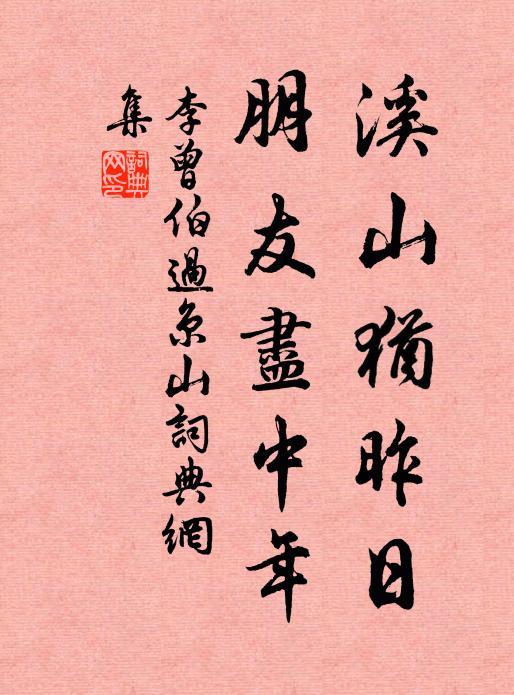 溪山猶昨日
朋友盡中年
李曾伯過京山詞典網
集
詞典网印